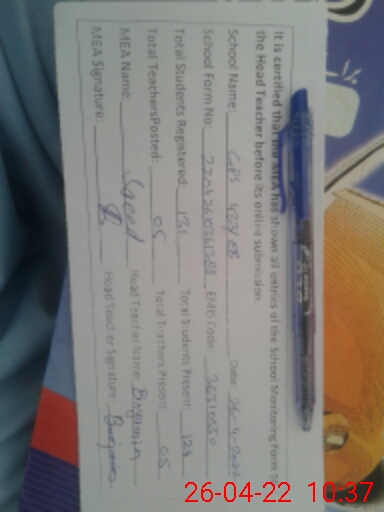 It is certified that the MEA has shown all entries of the School Monitoring Form to
the Head Teacher before its online submission.
School Name: GPS 439/EB Date: 26-4-2022
School Form No: EMIS Code:
Total Students Registered: 131 Total Students Present: 124
Total TeachersPosted: 05 Total Teachers Present: 05
MEA Name: Saeed Head Teacher Name: Benjamin
MEA Signature: Head Teacher Signature:
26-04-22 10:37